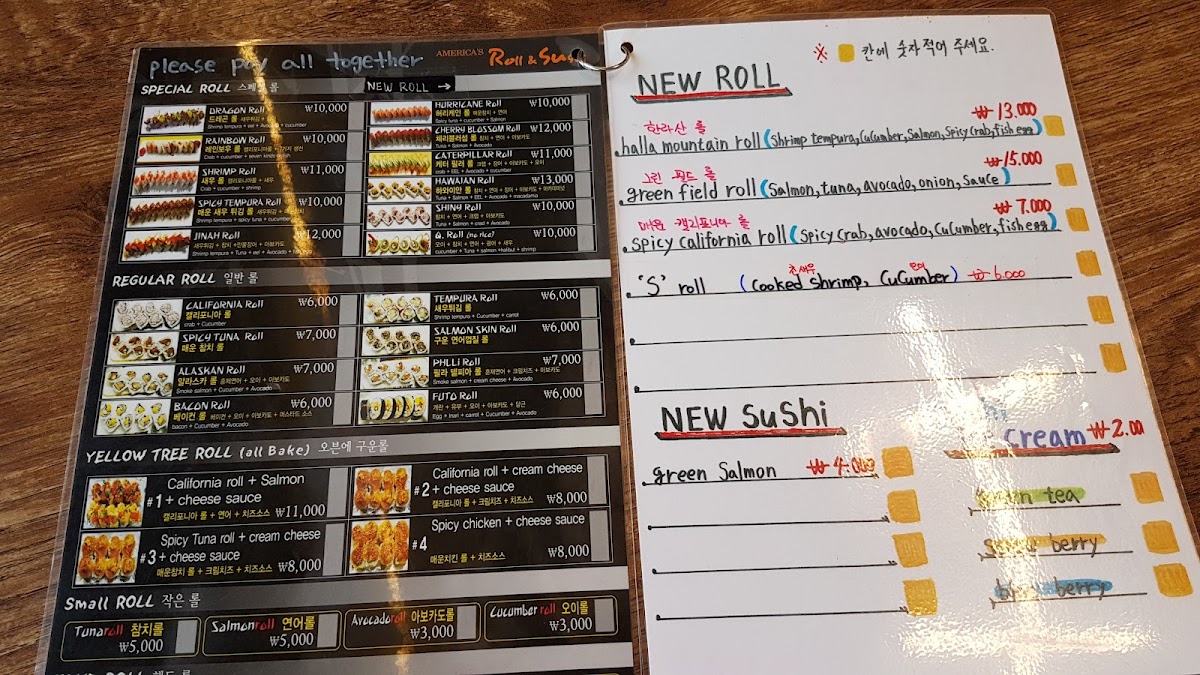 please pay all together
AMERICA'S
Roll & Sus
SPECIAL ROLL 스페셜 롤
NEW ROLL →
DRAGON Roll ₩10,000
드래곤 롤 새우튀김 + 장어
Shrimp tempura + eel + Avocado + cucumber
RAINBOW Roll ₩10,000
레인보우 롤
Crab + cucumber + seven kinds
SHRIMP Roll ₩11,000
새우 롤 캘리포니아롤 + 새우
Crab + cucumber + shrimp
SPICY TEMPURA Roll ₩10,000
매운 새우 튀김 롤
Shrimp tempura + spicy tuna + cucumber
JINAH Roll ₩12,000
Shrimp tempura + Tuna + eel + Avocado
HURRICANE Roll ₩10,000
허리케인 롤 매운참치 + 연어
Spicy tuna + cucumber + Salmon
CHERRY BLOSSOM Roll ₩12,000
체리블러섬 롤 참치 + 연어 + 아보카도
Tuna + Salmon + Avocado
CATERPILLAR Roll ₩11,000
케터 필러 롤 크랩 + 장어 + 아보카도 + 오이
crab + EEL + Avocado + cucumber
HAWAIIAN Roll ₩13,000
하와이안 롤 참치 + 연어 + 장어 + 아보카도 + 마카데미넛
Tuna + Salmon + EEL + Avocado + macadamia
SHINY Roll ₩10,000
참치 + 연어 + 크랩 + 아보카도
Tuna + Salmon + crad + Avocado
Q. Roll (no rice) ₩10,000
오이 + 참치 + 연어 + 광어 + 새우
cucumber + Tuna + salmon + halibut + shrimp
REGULAR ROLL 일반 롤
CALIFORNIA Roll ₩6,000
캘리포니아 롤
crab + Cucumber
SPICY TUNA Roll ₩7,000
매운 참치 롤
ALASKAN Roll ₩7,000
알라스카 롤 훈제연어 + 오이 + 아보카도
Smoke salmon + Cucumber + Avocado
BACON Roll ₩6,000
베이컨 롤 베이컨 + 오이 + 아보카도 + 머스타드 소스
bacon + Cucumber + Avocado
TEMPURA Roll ₩6,000
새우튀김 롤
Shrimp tempura + Cucumber + carrot
SALMON SKIN Roll ₩6,000
구운 연어껍질 롤
PHLLI Roll ₩7,000
필라 델피아 롤 훈제연어 + 크림치즈 + 아보카도
Smoke salmon + cream cheese + Avocado
FUTO Roll ₩6,000
계란 + 유부 + 오이 + 아보카도 + 당근
Egg + Inari + carrot + Cucumber + Avocado
YELLOW TREE ROLL (all Bake) 오븐에 구운롤
#1 California roll + Salmon
+ cheese sauce
캘리포니아 롤 + 연어 + 치즈소스 ₩11,000
#2 California roll + cream cheese
+ cheese sauce
캘리포니아 롤 + 크림치즈 + 치즈소스 ₩8,000
#3 Spicy Tuna roll + cream cheese
+ cheese sauce
매운참치 롤 + 크림치즈 + 치즈소스 ₩8,000
#4 Spicy chicken + cheese sauce
매운치킨 롤 + 치즈소스 ₩8,000
Small ROLL 작은 롤
Tuna roll 참치롤 ₩5,000
Salmon roll 연어롤 ₩5,000
Avocado roll 아보카도롤 ₩3,000
Cucumber roll 오이롤 ₩3,000
※ 칸에 숫자적어 주세요.
NEW ROLL
한라산 롤 ₩13.000
halla mountain roll (Shrimp tempura, Cucumber, Salmon, Spicy crab, fish egg)
그린 필드 롤 ₩15.000
green field roll (Salmon, tuna, avocado, onion, sauce)
매운 캘리포니아 롤 ₩7.000
spicy california roll (spicy crab, avocado, cucumber, fish egg)
초새우 오이
'S' roll (cooked shrimp, cucumber) ₩6.000
NEW SuShi
green Salmon ₩4.000
cream ₩2.00
green tea
berry
berry